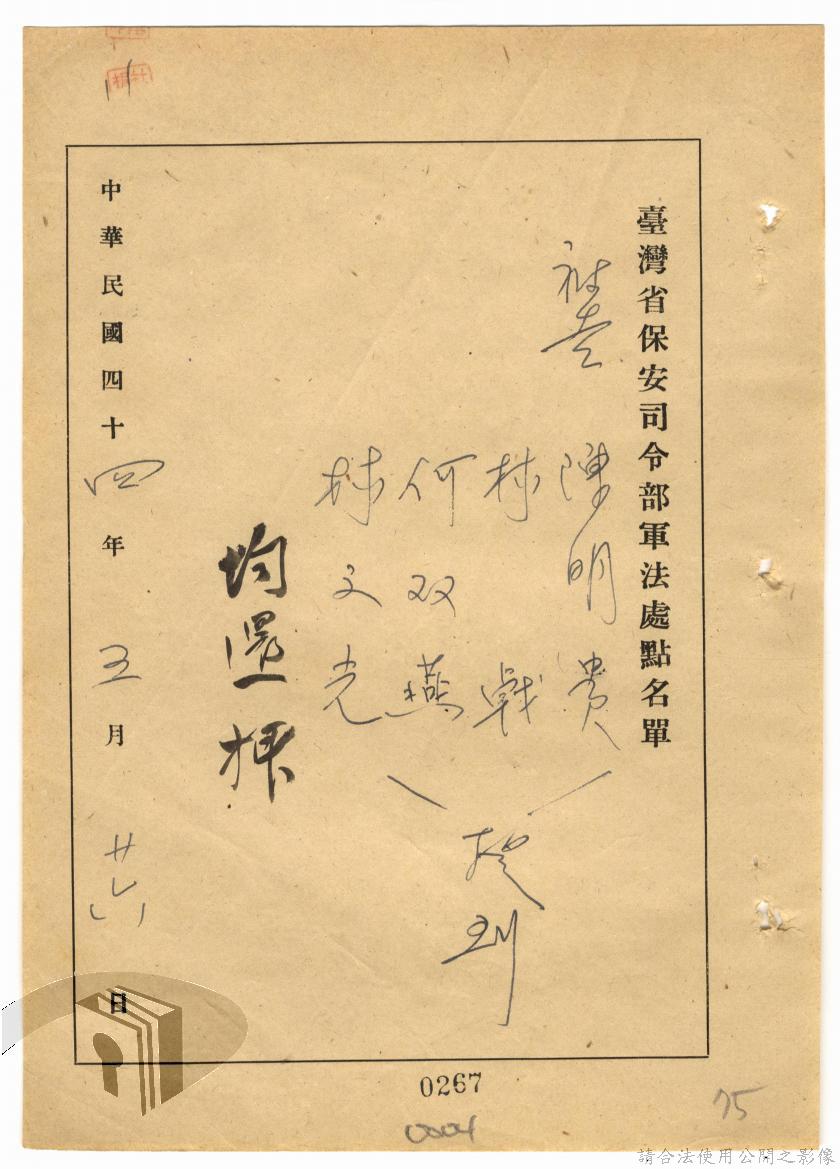 臺灣省保安司令部軍法處點名單
被告
陳明貴
林戟
何双燕
林文光
提到
均還押
中華民國四十四年五月廿六日
0267
0004
75
請合法使用公開之影像